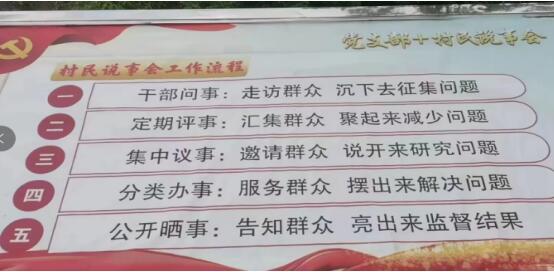 党支部+村民说事会
村民说事会工作流程
一 干部问事：走访群众 沉下去征集问题
二 定期评事：汇集群众 聚起来减少问题
三 集中议事：邀请群众 说开来研究问题
四 分类办事：服务群众 摆出来解决问题
五 公开晒事：告知群众 亮出来监督结果